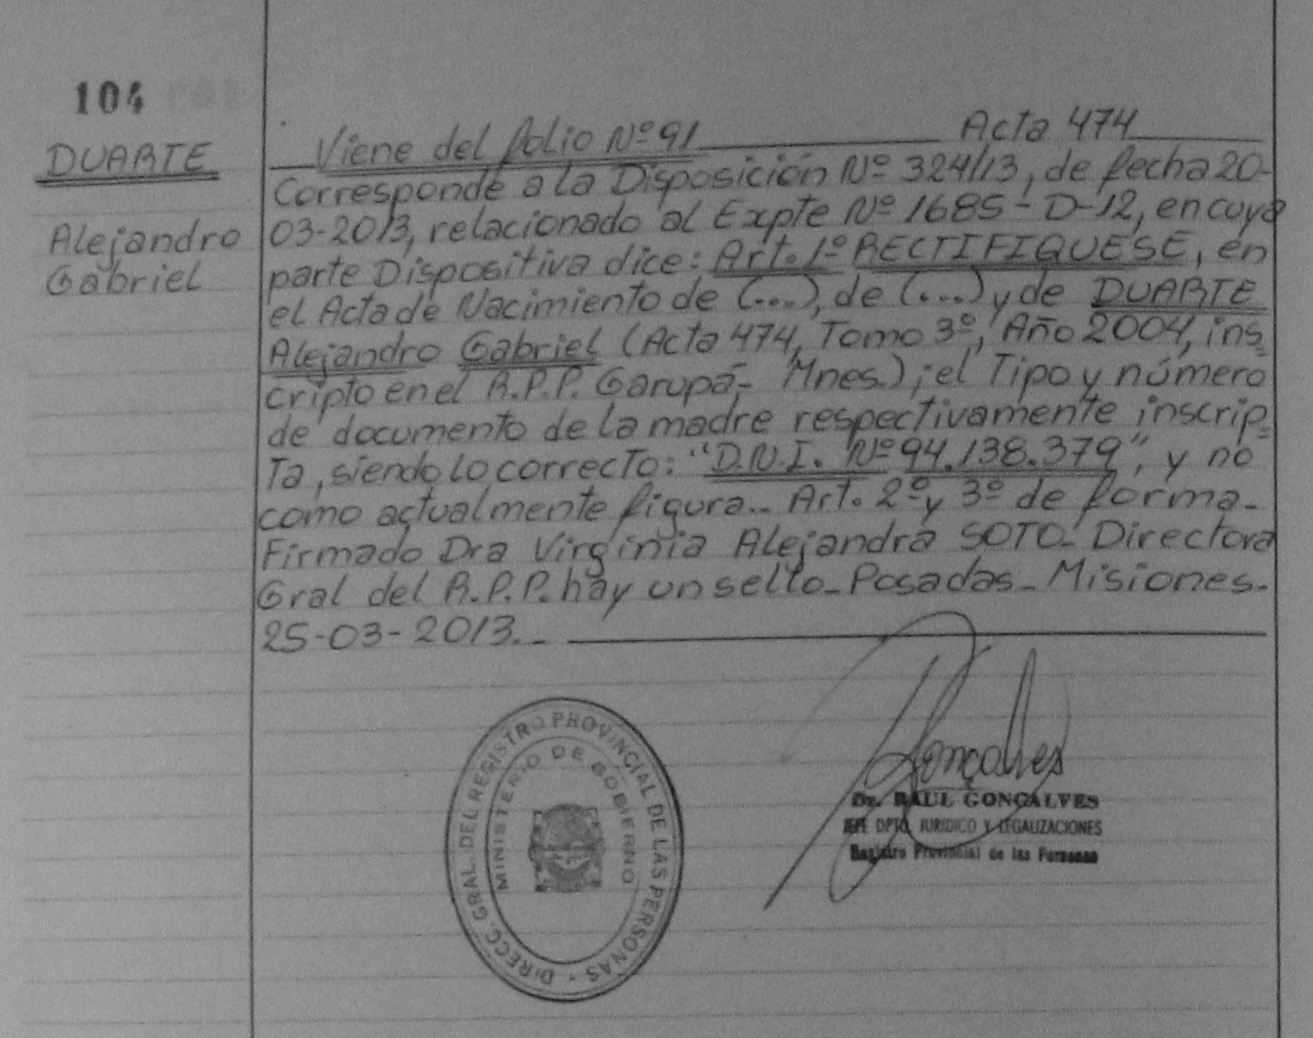 104
DUARTE
Alejandro
Gabriel
Viene del folio Nº 91 Acta 474
Corresponde a la Disposición Nº 324/13, de fecha 20-
03-2013, relacionado al Expte Nº 1685-D-12, en cuya
parte Dispositiva dice: Art. 1º RECTIFIQUESE, en
el Acta de Nacimiento de (...), de (...) y de DUARTE
Alejandro Gabriel (Acta 474, Tomo 3º, Año 2004, ins=
cripto en el R.P.P. Garupá- Mnes.); el Tipo y número
de documento de la madre respectivamente inscrip=
Ta, siendo lo correcto: "D.N.I. Nº 94.138.379", y no
como actualmente figura.. Art. 2º y 3º de forma-
Firmado Dra Virginia Alejandra SOTO- Directora
Gral del R.P.P. hay un sello- Posadas- Misiones-
25-03-2013.-
DIRECC. GRAL. DEL REGISTRO PROVINCIAL DE LAS PERSONAS -
MINISTERIO DE GOBIERNO
Gonçalves
Dr. RAUL GONÇALVES
JEFE DPTO. JURIDICO Y LEGALIZACIONES
Registro Provincial de las Personas